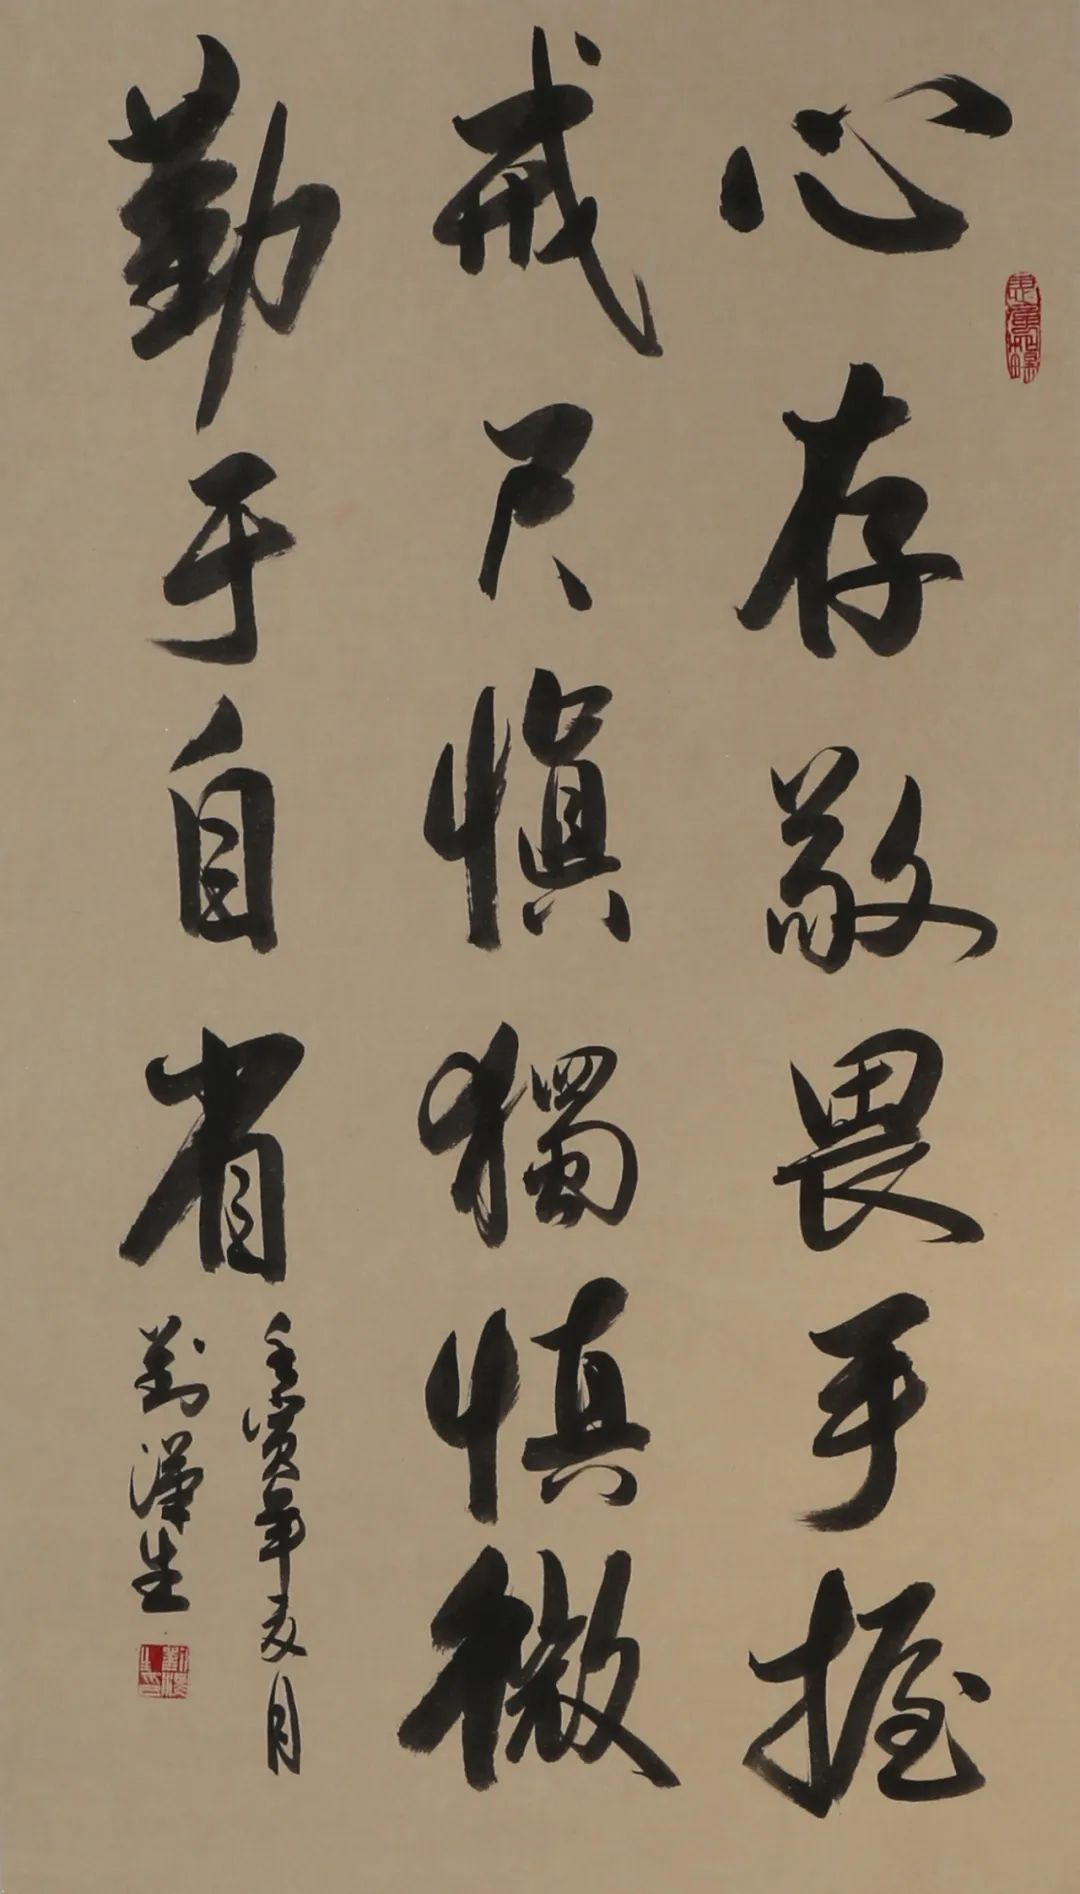 心存敬畏手握
戒尺慎獨慎微
勤于自省
壬寅年夏月
劉漢生